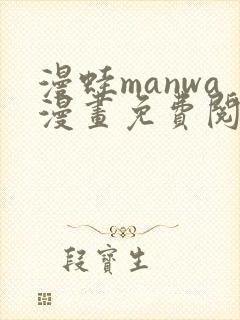 漫蛙manwa
漫畫免費閱
段寶生